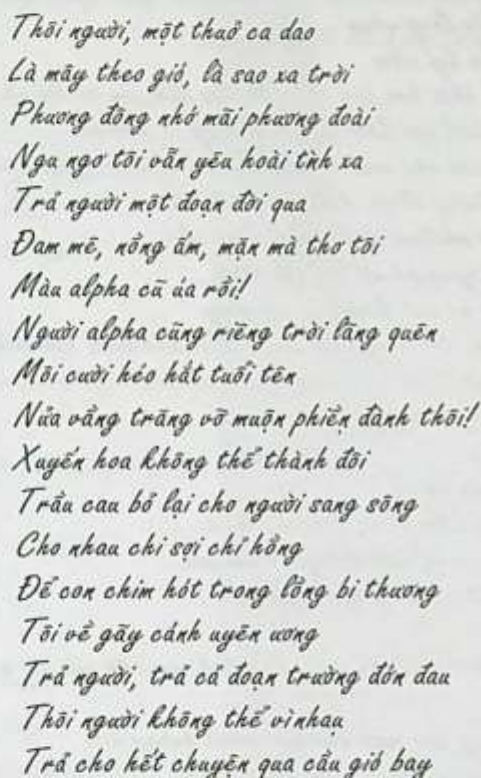 Thôi người, một thuở ca dao
Là mây theo gió, là sao xa trời
Phương đông nhớ mãi phương đoài
Ngu ngơ tôi vẫn yêu hoài tình xa
Trả người một đoạn đời qua
Đam mê, nồng ấm, mặn mà thơ tôi
Màu alpha cũ úa rồi!
Người alpha cũng riêng trời lãng quên
Môi cười héo hắt tuổi tên
Nửa vầng trăng vỡ muộn phiền đành thôi!
Xuyến hoa không thể thành đôi
Trầu cau bỏ lại cho người sang sông
Cho nhau chi sợi chỉ hồng
Để con chim hót trong lồng bi thương
Tôi về gãy cánh uyên ương
Trả người, trả cả đoạn trường đớn đau
Thôi người không thể vì nhau
Trả cho hết chuyện qua cầu gió bay